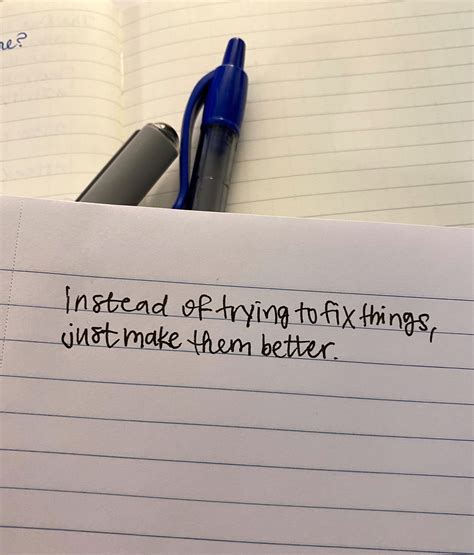 Instead of trying to fix things,
just make them better.